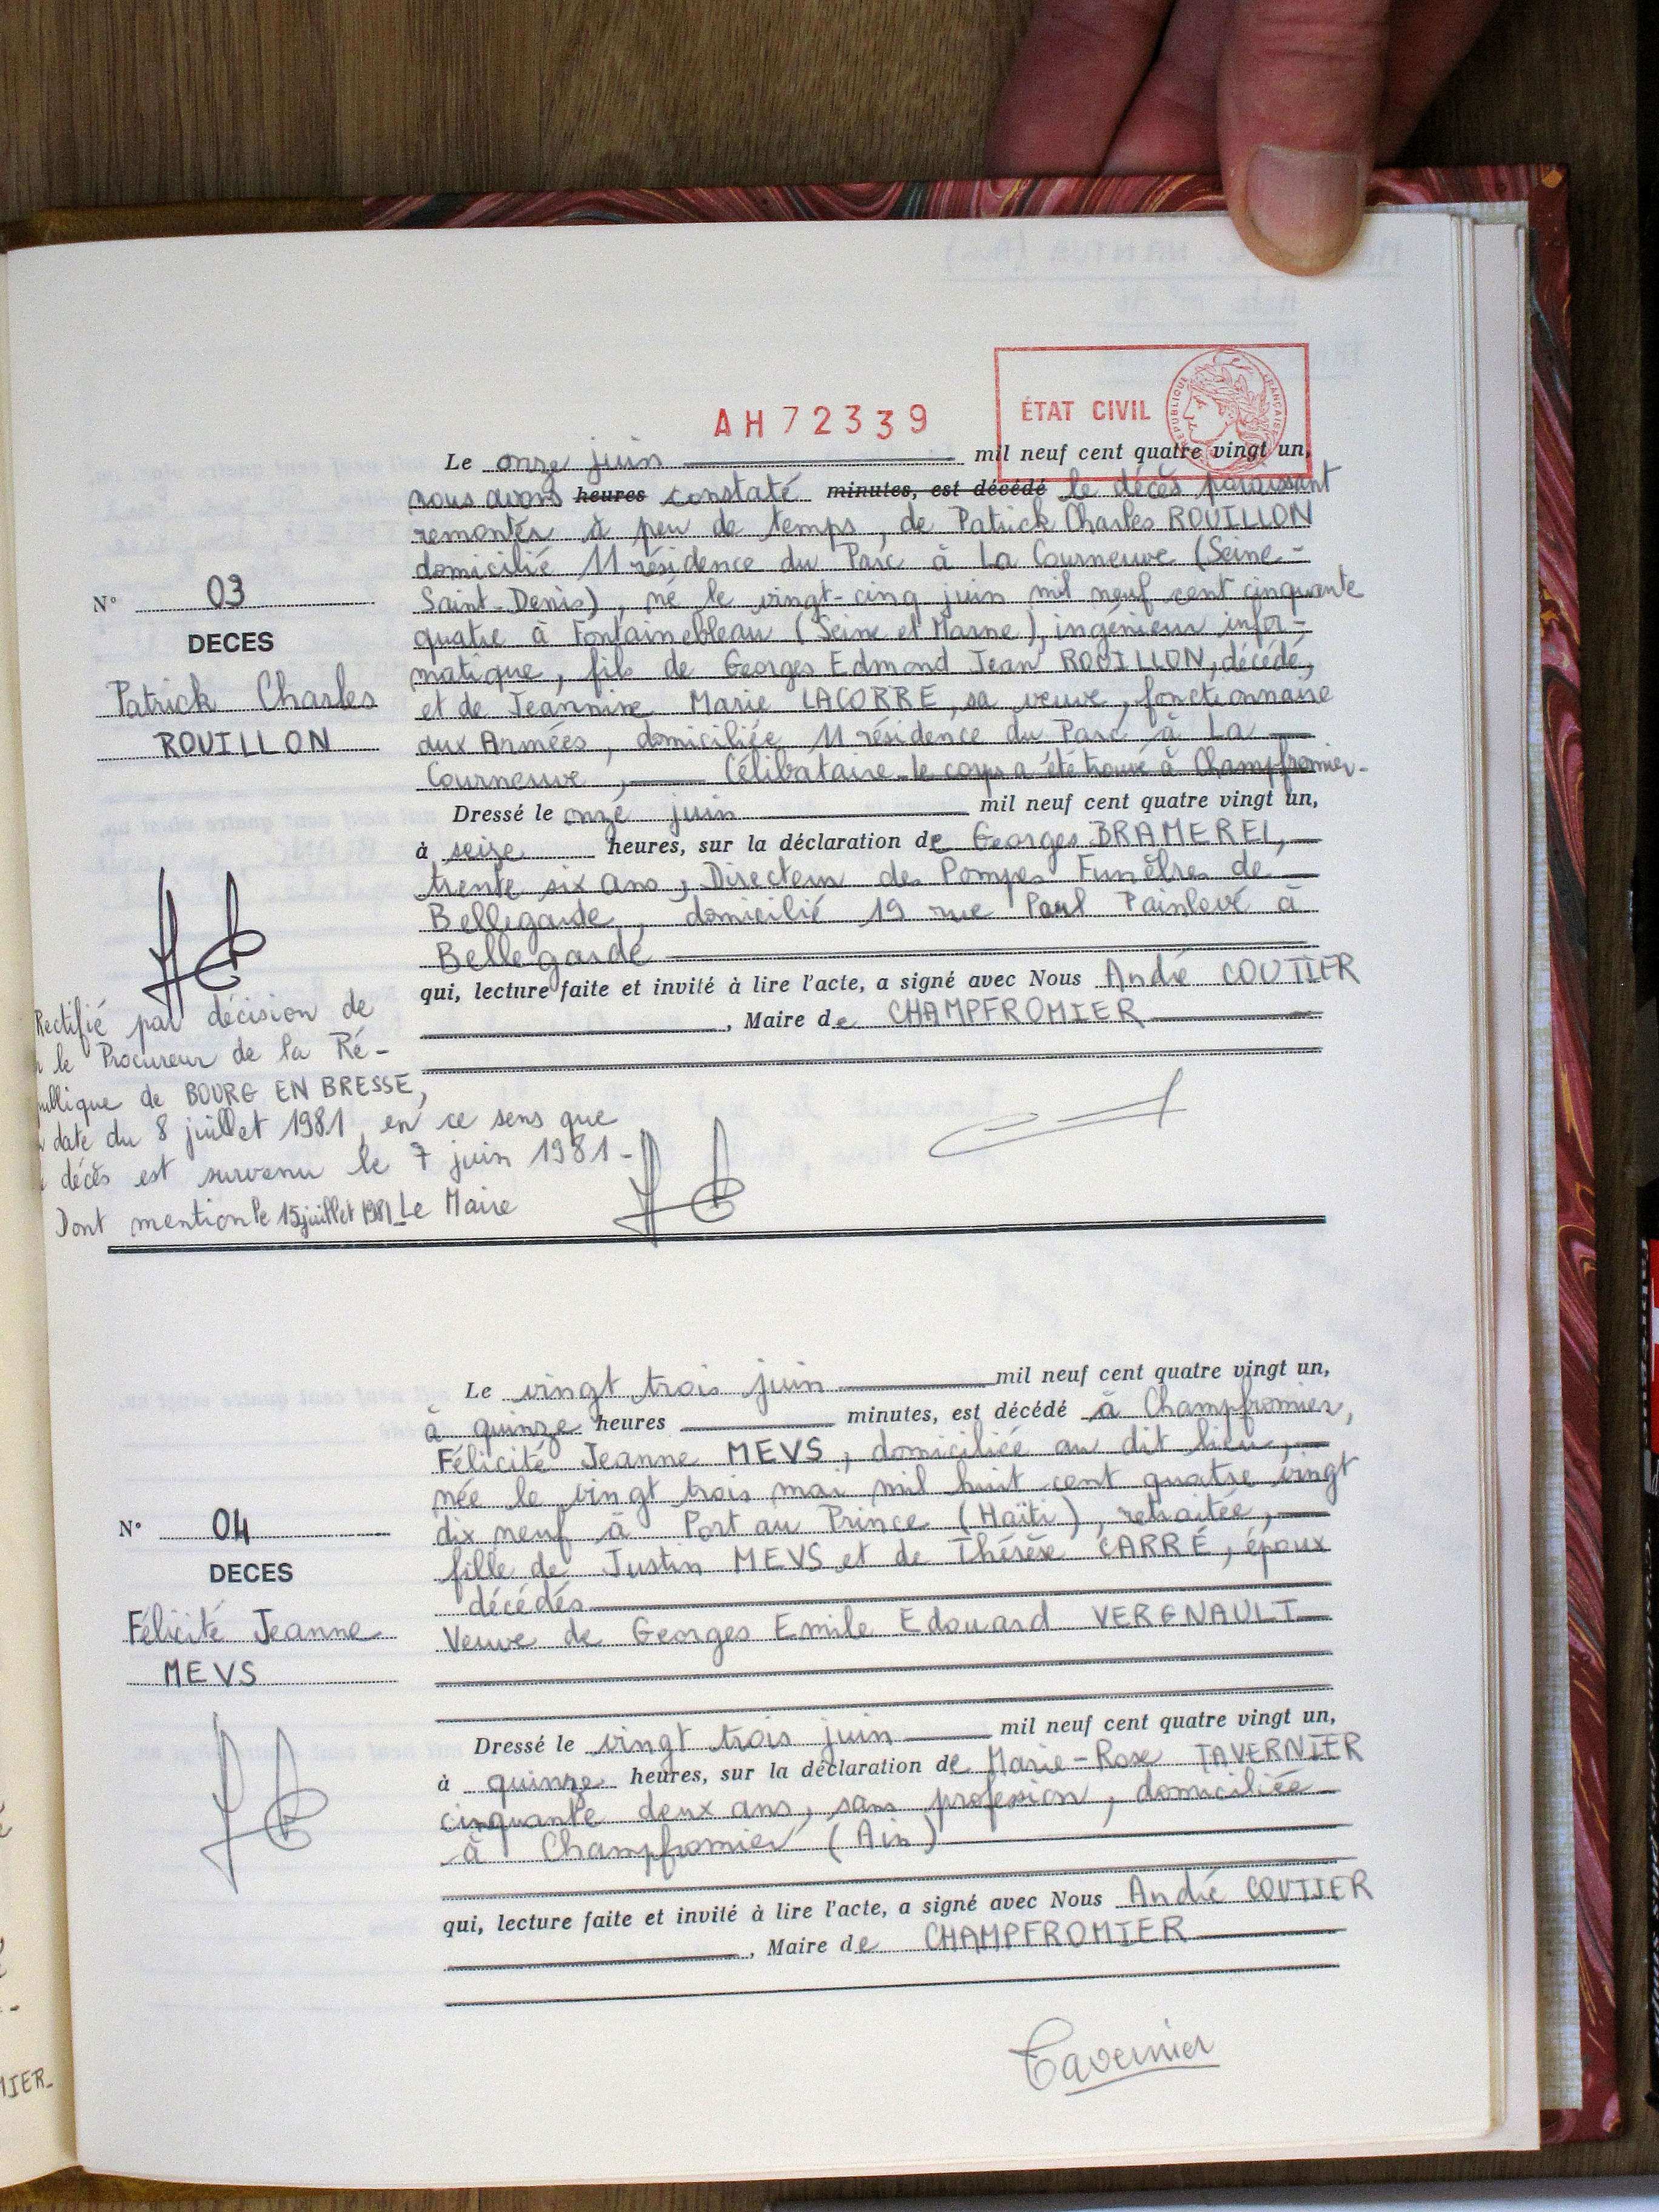 AH72339
ÉTAT CIVIL
RÉPUBLIQUE FRANÇAISE
Le onze juin mil neuf cent quatre vingt un,
nous avons heures constaté minutes, est décédé le décès paraissant
remonter à peu de temps, de Patrick Charles ROUILLON
domicilié 11 résidence du Parc à La Courneuve (Seine-
Saint-Denis), né le vingt-cinq juin mil neuf cent cinquante
quatre à Fontainebleau (Seine et Marne), ingénieur infor-
matique, fils de Georges Edmond Jean ROUILLON, décédé,
et de Jeannine Marie LACORRE, sa veuve, fonctionnaire
aux Armées, domiciliée 11 résidence du Parc à La
Courneuve, Célibataire le corps a été trouvé à Champfromier.
N° 03
DECES
Patrick Charles
ROUILLON
Dressé le onze juin mil neuf cent quatre vingt un,
à seize heures, sur la déclaration de Georges BRAMEREL,
trente six ans, Directeur des Pompes Funèbres de
Bellegarde, domicilié 19 rue Paul Painlevé à
Bellegarde
qui, lecture faite et invité à lire l'acte, a signé avec Nous André COUTIER
, Maire de CHAMPFROMIER
Rectifié par décision de
le Procureur de la Ré-
publique de BOURG EN BRESSE,
date du 8 juillet 1981, en ce sens que
décès est survenu le 7 juin 1981-
Dont mention le 15 juillet 1981_Le Maire
Le vingt trois juin mil neuf cent quatre vingt un,
à quinze heures minutes, est décédé à Champfromier,
Félicité Jeanne MEVS, domiciliée au dit lieu,
née le vingt trois mai mil huit cent quatre vingt
dix neuf à Port au Prince (Haïti), retraitée,
fille de Justin MEVS et de Thérèse CARRÉ, époux
décédés
Veuve de Georges Emile Edouard VERGNAULT
N° 04
DECES
Félicité Jeanne
MEVS
Dressé le vingt trois juin mil neuf cent quatre vingt un,
à quinze heures, sur la déclaration de Marie-Rose TAVERNIER
cinquante deux ans, sans profession, domiciliée
à Champfromier (Ain)
qui, lecture faite et invité à lire l'acte, a signé avec Nous André COUTIER
, Maire de CHAMPFROMIER
Tavernier
MIER-